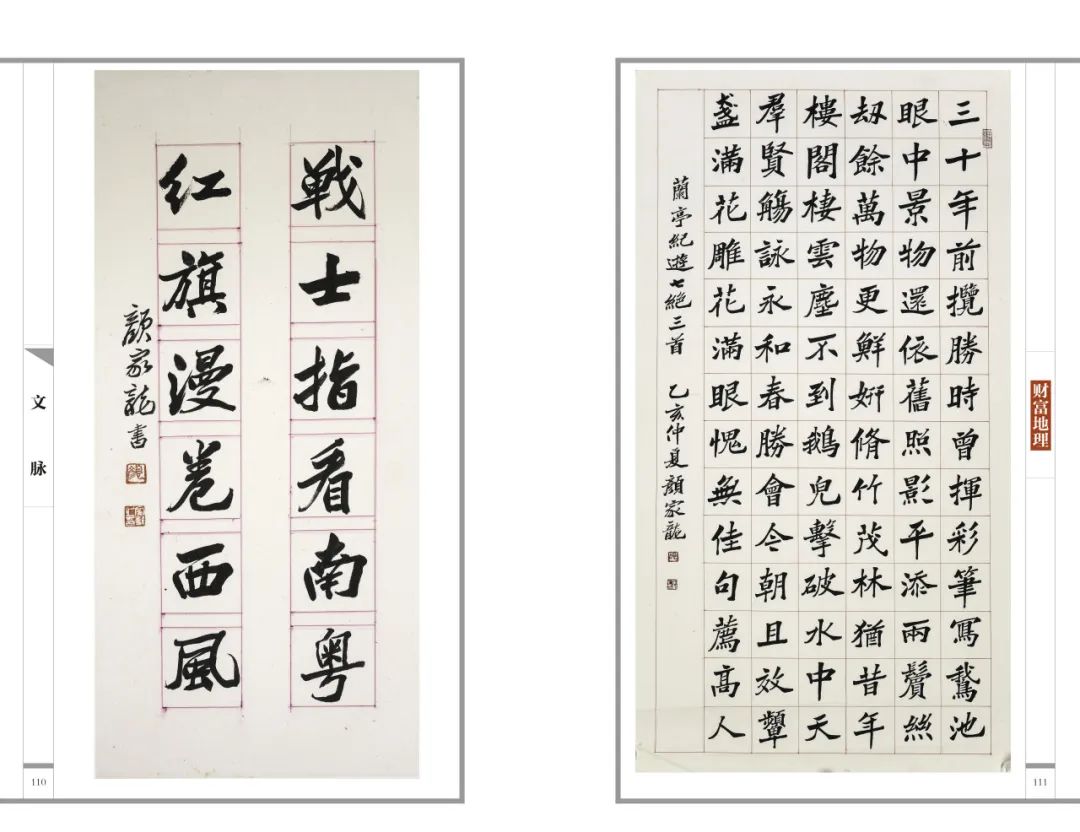 戦士指看南粤
红旗漫卷西風
顔家龍書
文脉
110
三十年前攬勝時曾揮彩筆寫鵞池
眼中景物還依舊照影平添兩鬢絲
刼餘萬物更鮮妍脩竹茂林猶昔年
樓閣棲雲塵不到鵝兒擊破水中天
羣賢觴詠永和春勝會今朝且效顰
盞滿花雕花滿眼愧無佳句薦高人
蘭亭紀遊七絕三首 乙亥仲夏顔家龍
财富地理
111